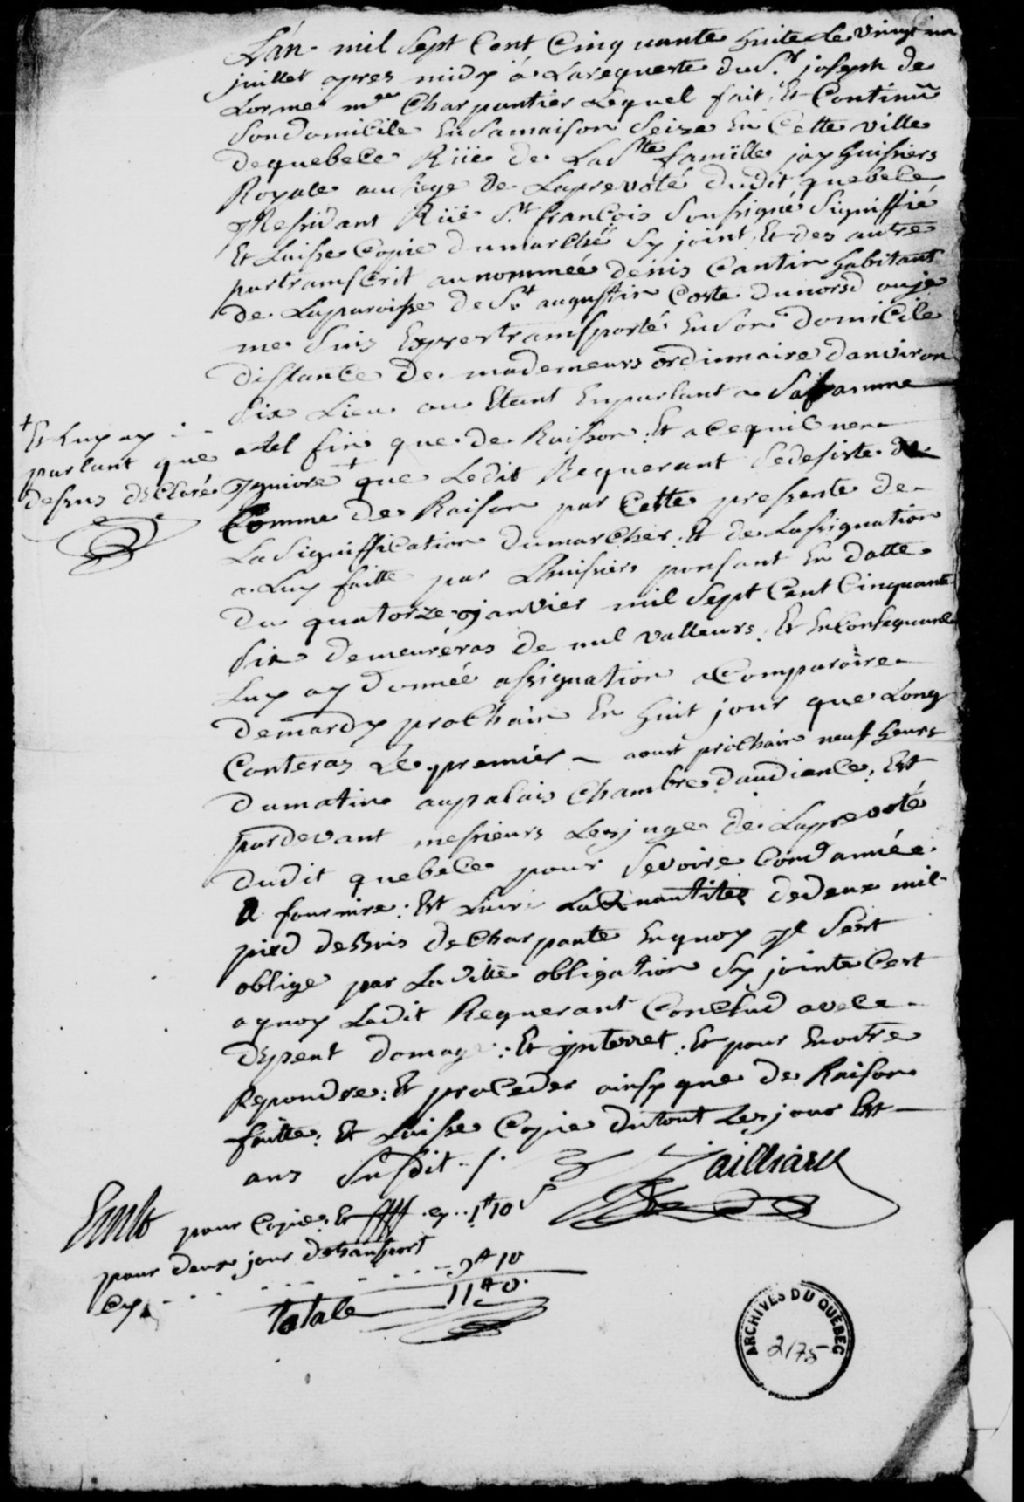 L'an mil sept Cent Cinquante huite le vingt un
juillet apres midy à La requeste du Sr. joseph de
Lorme me. Charpantier Lequel fait Et Continu
Son domicile En Sa maison Seize En Cette ville
de quebece Rüe de La Ste famille jay huissiers
Royale au siege De La prevoté dudit quebece
Residant Rüe St. francois Soussigné Signiffié
Et Laisse Copie du marché Sy joint Et des autre
part transcrit au nommée denis Cantin habitant
de La paroisse de St augustin Coste du nord ou je
me Suis Expres transporté En Son Domicile
distance De ma demeurs ordinnaire d'anviron
Six Lieu ou Etant En parlant a Sa famme
a tel fin que de Raison Et a Ce quil nen
ygniore + que Ledit Requerant Se desiste de
Comme de Raison par Cette presente de
La Signiffication du marcher Et de Lassignation
a Luy faitte par Lhuissiers ponsant En datte
Du quatorze janvier mil Sept Cent Cinquante
Six demeureras de nul valleurs Et En Consequance
Luy ay donnée assignation a Comparoire
de mardy prochain En huit jour que Long
Conteras Le premier aoust prochain neuf heurs
du matin au palais Chambre d'audiance Est
par devant messieurs Les juge de La prevoté
dudit quebece pour Se voire Condamnée
A fournire Est Livri La Quantitée de deux mil
pied de Bois de Charpante En quoy yl Sest
oblige par La ditte obligation Sy jointe Cest
a quoy Ledit Requerant Conclud avece
Depent domage Et ynterret Et pour En outre
Repondre Et proceder ainsy que de Raison
faitte Et Laisse Copie du tout Les jour Est
ans Susdit
+ Et Luy ay
parlant que
dessus desClaré
Jailliard
pour Copie Et cy 1# 10 s
pour deux jour de transport
Cy 9# 10
totale 11# 0
ARCHIVES DU QUÉBEC
2175